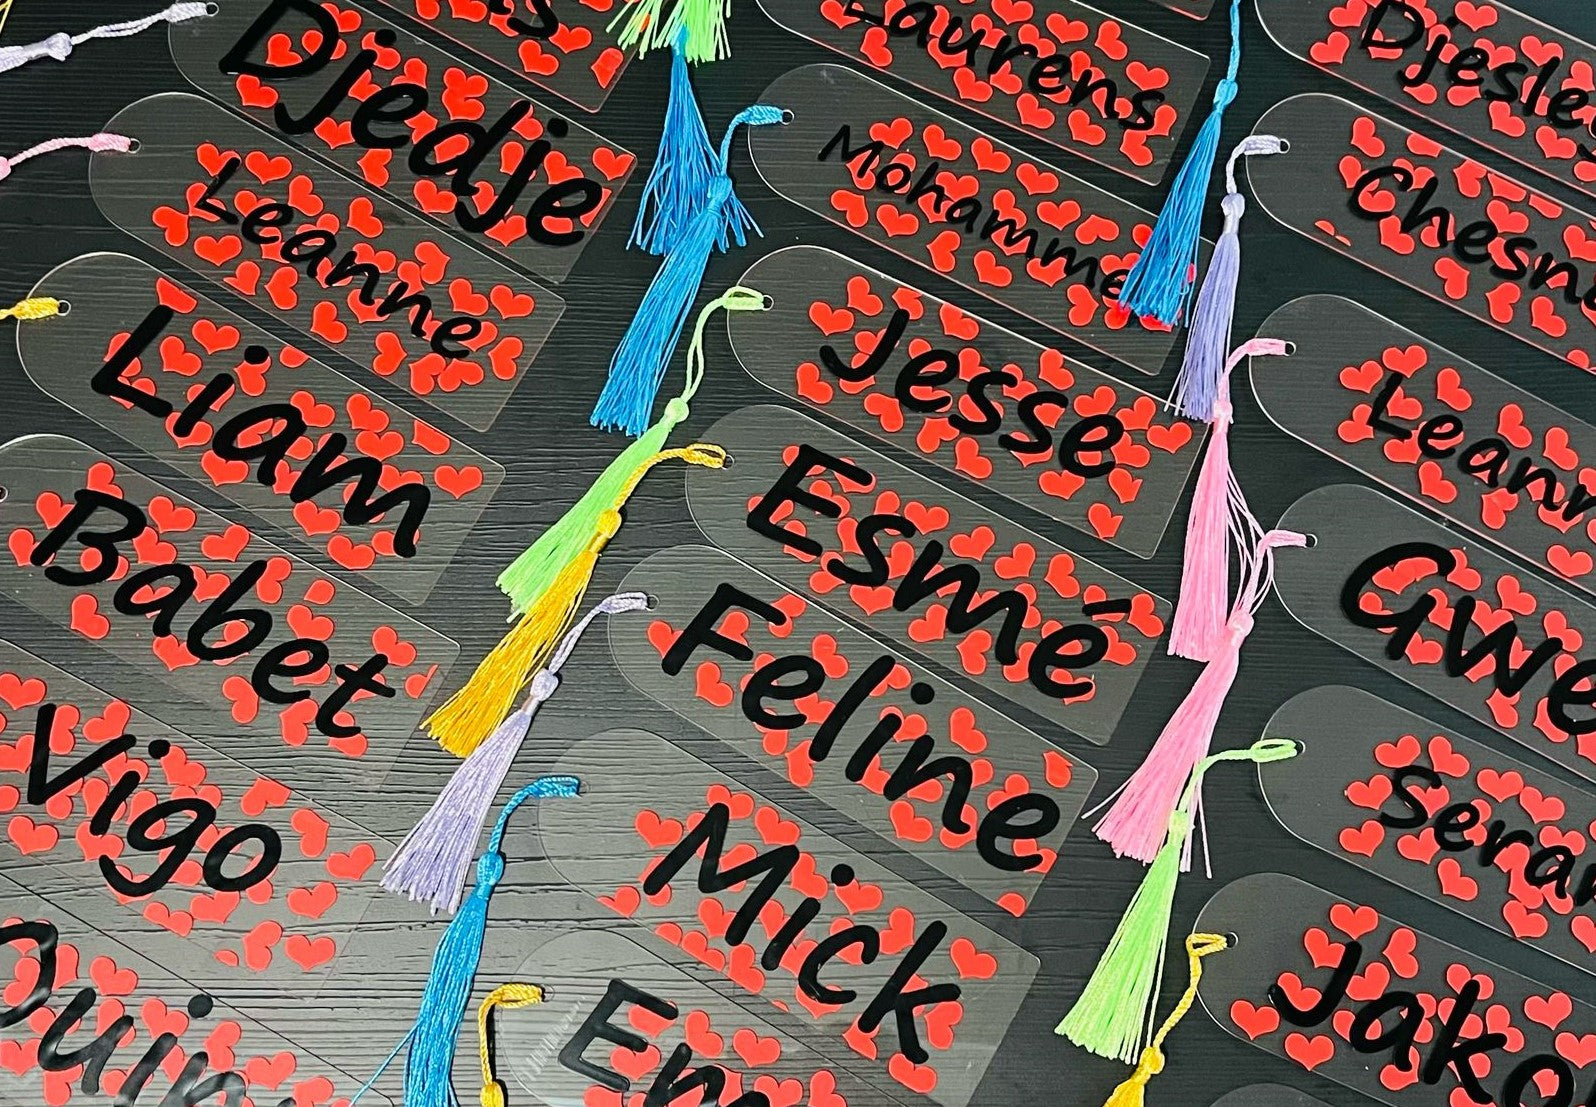 Djedje
Leanne
Liam
Babet
Vigo
Quin
Laurens
Mohamme
Jesse
Esmé
Feline
Mick
Em
Djesle
Chesn
Leann
Gwe
Sera
Jako